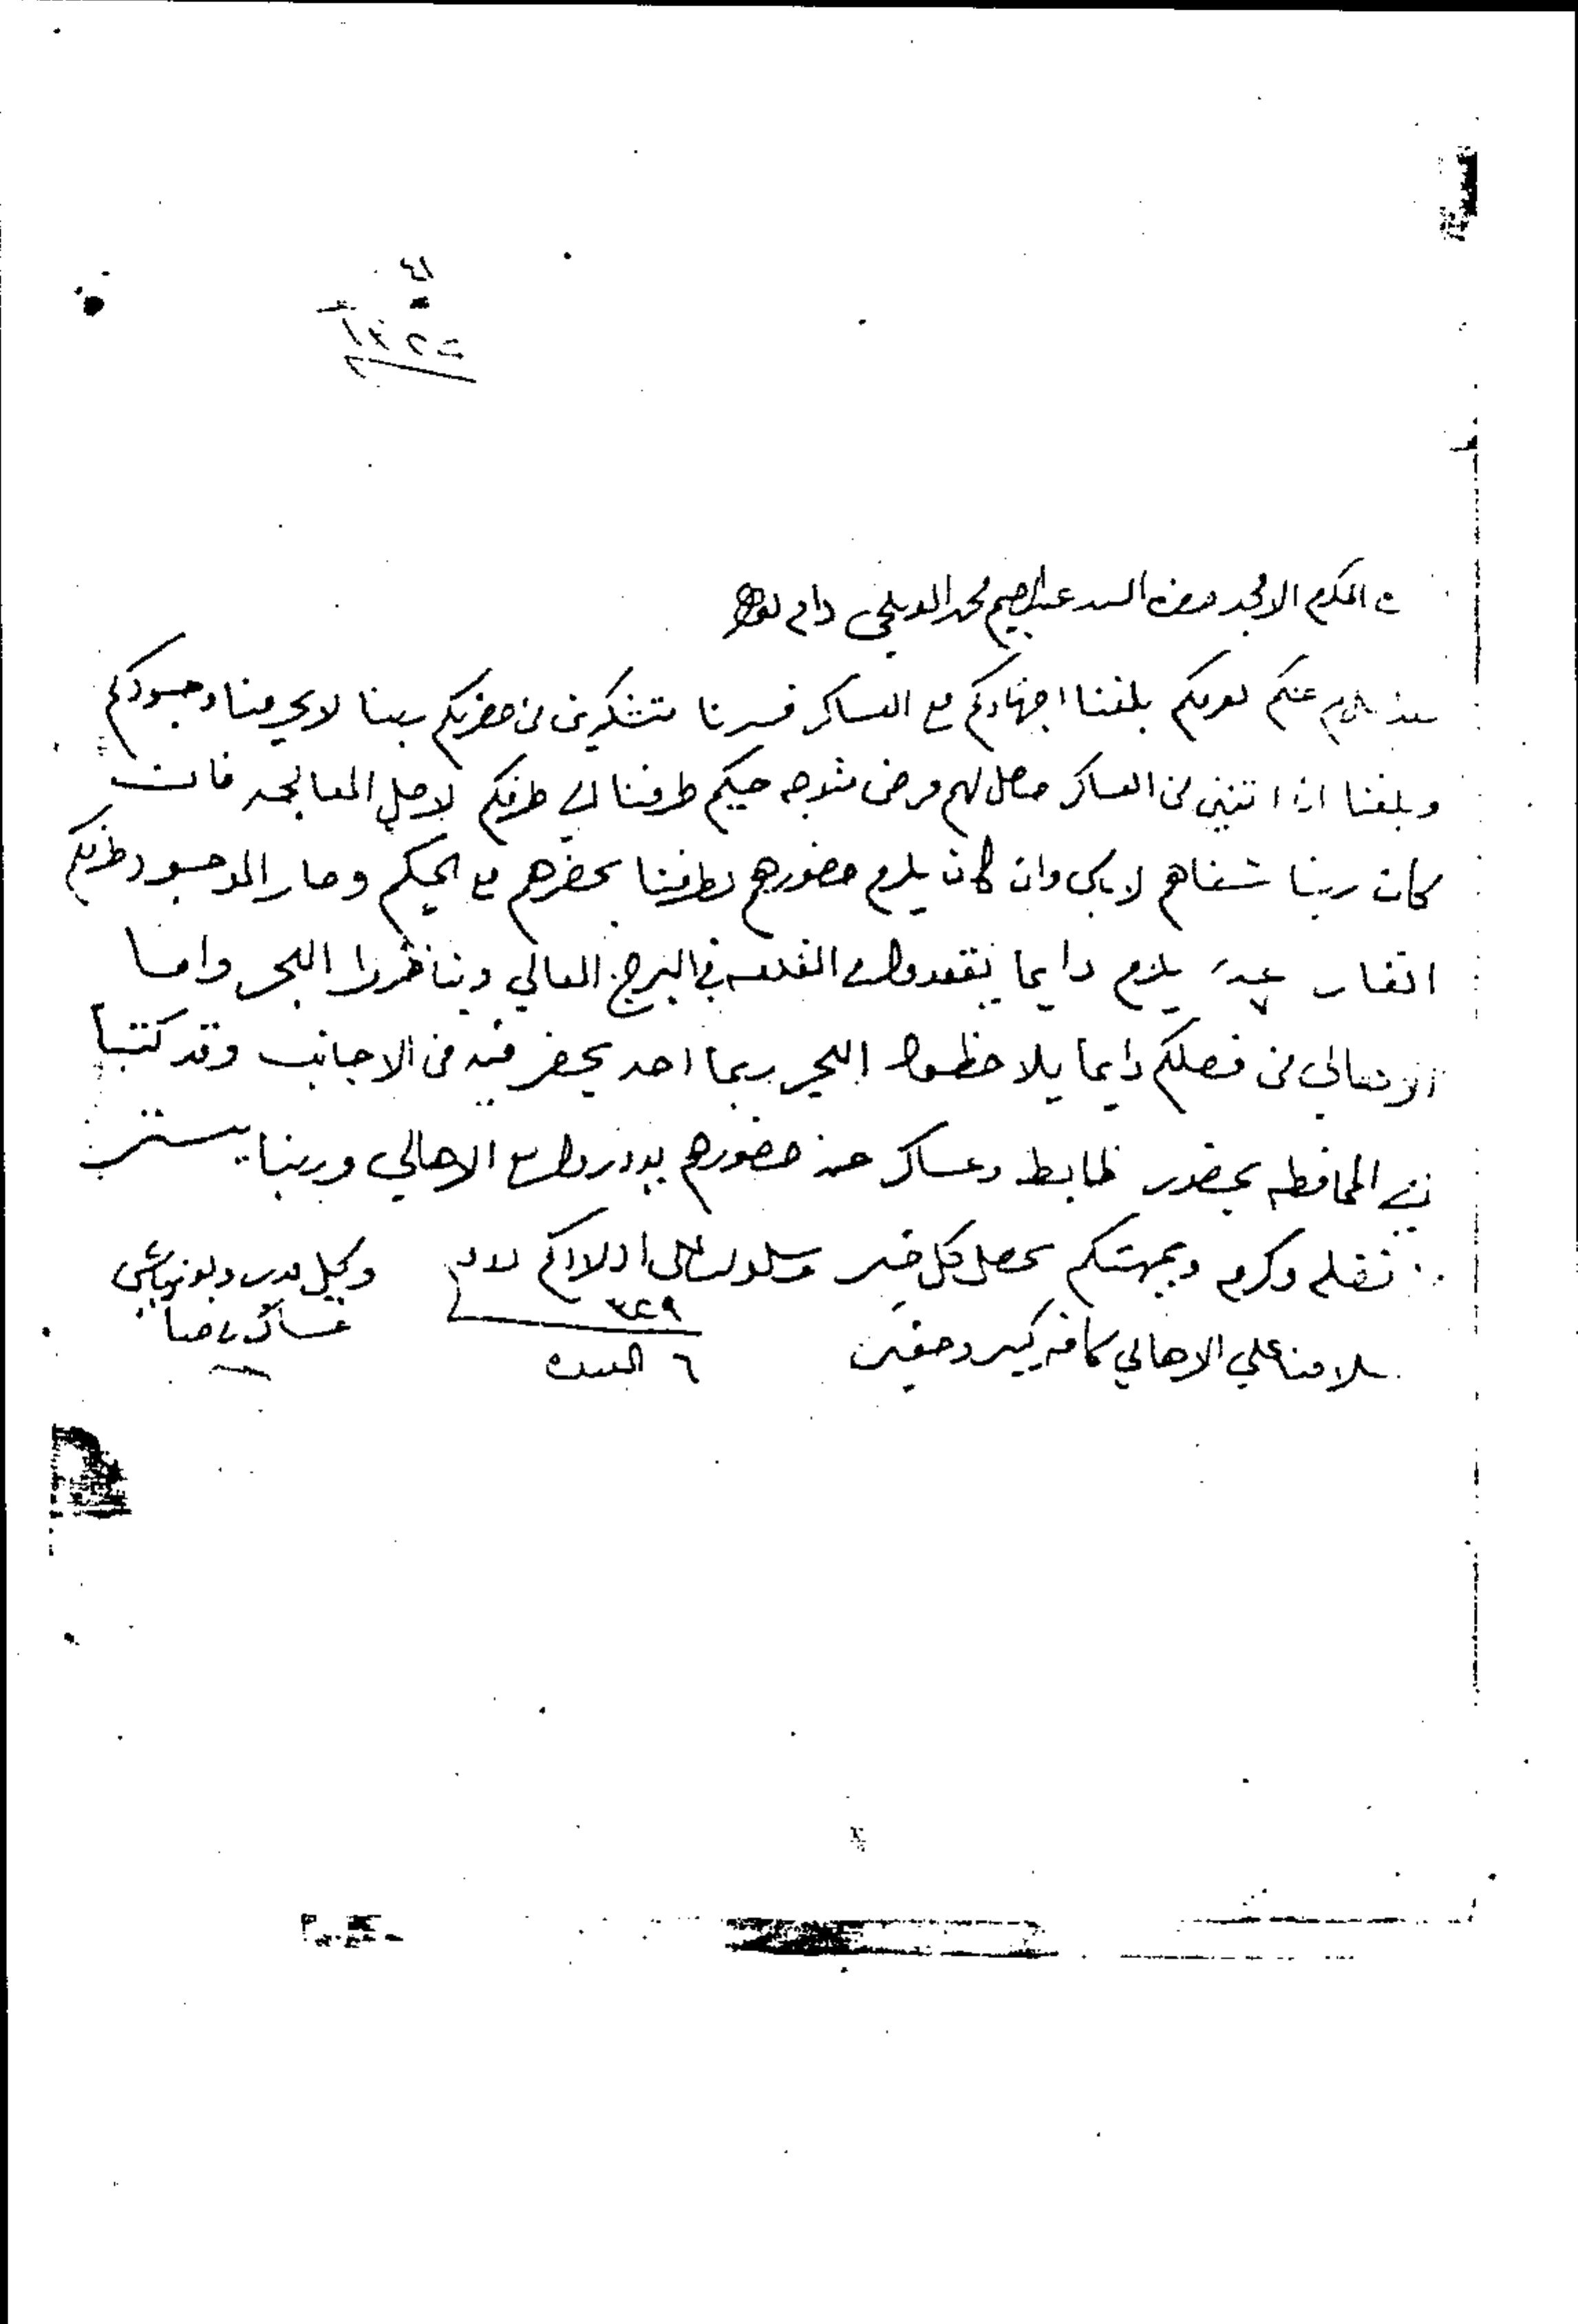 ٤١
المكرم الامجد حضرة السيد عبدالرحيم محمد الوبلجي دام
بعد سلام عنكم نعرفكم بلغنا اجتهادكم مع العساكر فسرنا متشكرين من حضرتكم ربنا لا يحرمنا وجودكم
وبلغنا ان اتنين من العساكر حصل لهم مرض متوجه حكيم طرفنا الى طرفكم لاجل المعالجه فان
كان ربنا شفاهم لا باس وان كان يلزم حضورهم لطرفنا يحضرهم مع الحكيم وصار الموجود طرفكم
انفار يلزم دايما يقعدوا في القلعه في البرج العالي ويناظروا البحر واما
الاهالي من فضلكم دايما يلاحظوا البحر ربما احد يحضر فيه من الاجانب وقد كتبنا
الى المحافظه بحضور ظابط وعساكر عند حضورهم يدوروا مع الاهالي وربنا يستر
بفضله وكرمه وبهمتكم يحصل كل خير وسلموا على اولادكم
سلامنا على الاهالي كافه كبير وصغير
٣٢٩
٦ القعده
وكيل ويوزباشي
عساكر ضبا